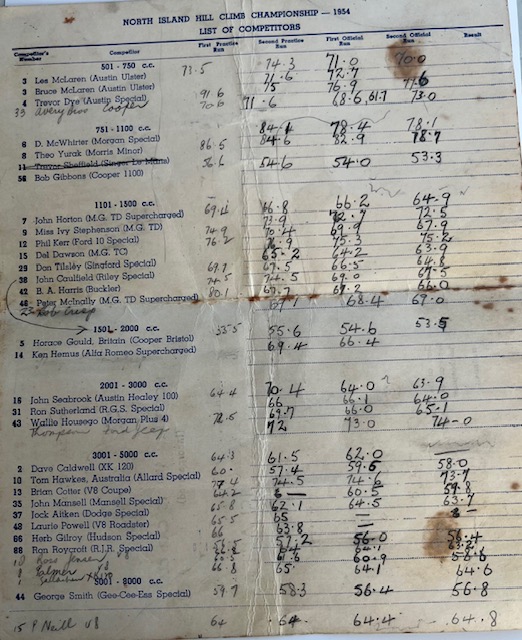 NORTH ISLAND HILL CLIMB CHAMPIONSHIP — 1954
LIST OF COMPETITORS
Competitor's Number Competitor First Practice Run Second Practice Run First Official Run Second Official Run Result
501 - 750 c.c.
3 Les McLaren (Austin Ulster) 73.5 74.3 71.0 70.0
3 Bruce McLaren (Austin Ulster) 71.6 72.7
4 Trevor Dye (Austin Special) 91.6 75 76.9
33 Avery Bros Cooper 70.6 71.6 68.6 61.7 73.0
751 - 1100 c.c.
6 D. McWhirter (Morgan Special) 84.1 78.4 78.1
8 Theo Yurak (Morris Minor) 86.5 84.6 82.9 78.7
11 Trevor Sheffield (Singer Le Mans)
56 Bob Gibbons (Cooper 1100) 56.6 54.6 54.0 53.3
1101 - 1500 c.c.
7 John Horton (M.G. TD Supercharged) 69.4 66.8 66.2 64.9
9 Miss Ivy Stephenson (M.G. TD) 74.9 73.9 72.7 72.5
12 Phil Kerr (Ford 10 Special) 76.2 70.4 69.9 67.9
15 Del Dawson (M.G. TC) 76.9 75.3 75.2
29 Don Tilsley (Singford Special) 65.2 64.2 63.9
38 John Caulfield (Riley Special) 67.5 66.5 64.8
42 B. A. Harris (Buckler) 74.5 69.0 67.5
48 Peter McInally (M.G. TD Supercharged) 80.1 67.2 66.0
23 Rob 68.4 67.0
1501 - 2000 c.c.
5 Horace Gould, Britain (Cooper Bristol) 55.5 55.6 54.6 53.5
14 Ken Hemus (Alfa Romeo Supercharged) 69.4 66.4
2001 - 3000 c.c.
16 John Seabrook (Austin Healey 100) 64.4 70.4 64.0 63.9
31 Ron Sutherland (R.G.S. Special) 66 66.1 64.0
43 Wallie Housego (Morgan Plus 4) 72.5 69.7 66.0 65.1
Thompson Ford Jeep 72 73.0 74-0
3001 - 5000 c.c.
2 Dave Caldwell (XK 120) 64.3 61.5 62.0
10 Tom Hawkes, Australia (Allard Special) 60. 57.4 59.6 58.0
13 Brian Cotter (V8 Coupe) 77.4 74.5 74.6 73.7
35 John Mansell (Mansell Special) 64.2 60.5 59.8
37 Jock Aitken (Dodge Special) 65.8 62.1 64.5 63.7
48 Laurie Powell (V8 Roadster) 65.5 65
66 Herb Gilroy (Hudson Special) 66 63.8
88 Ron Roycroft (R.J.R. Special) 56.5 57.2 56.0 56.4
Ross Jensen 60.9
Palmer V8 66.8 65 64.1 64.6
5001 - 8000 c.c.
44 George Smith (Gee-Cee-Ess Special) 59.7 58.3 56.4 56.8
15 P Neill V8 64 64. 64.4 64.8